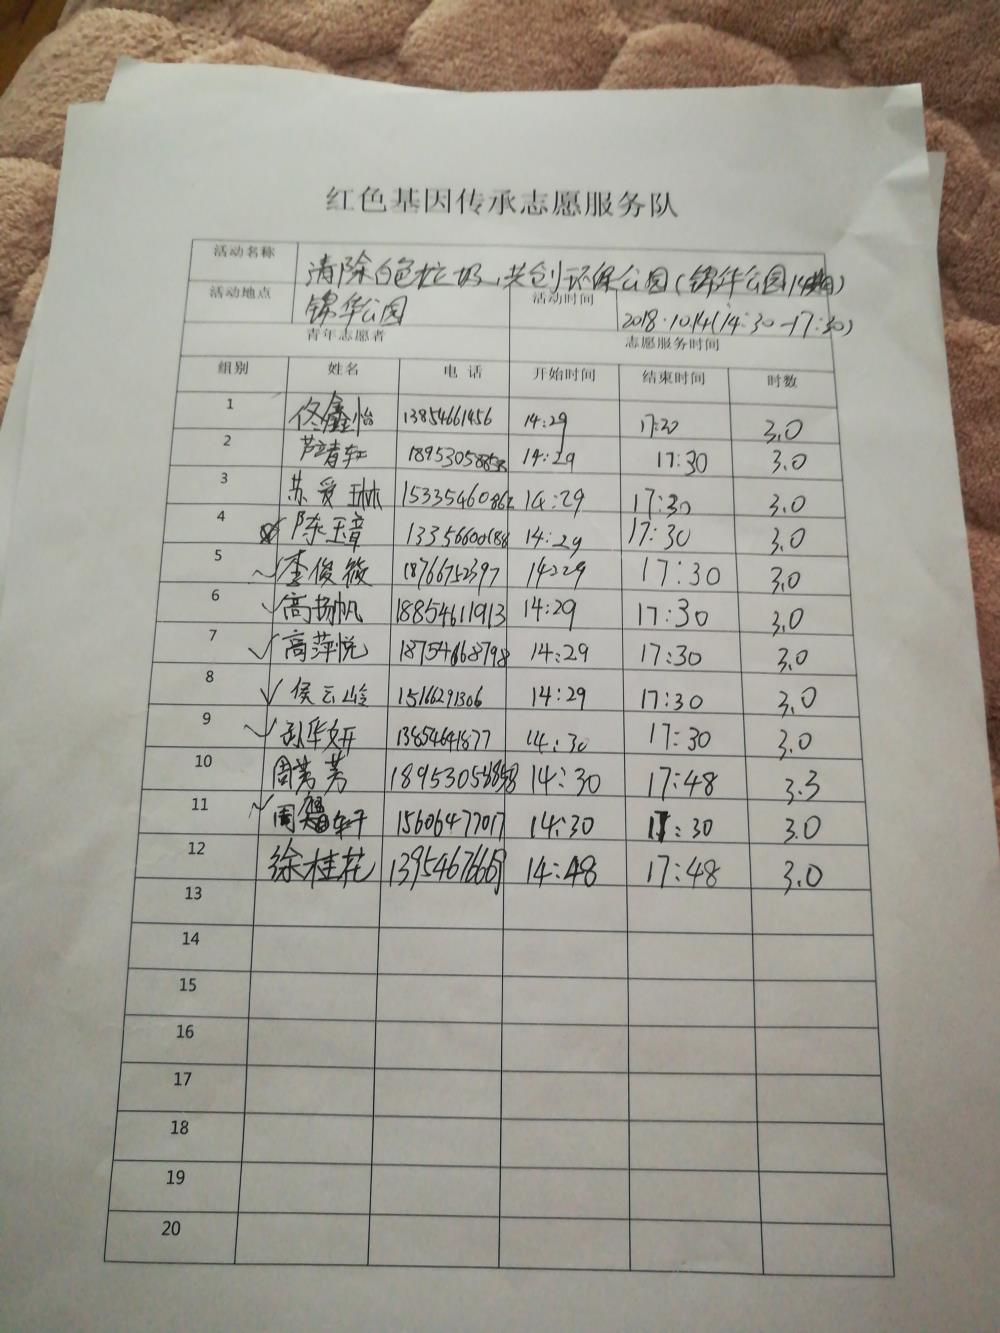 红色基因传承志愿服务队
活动名称 清除白色垃圾,共创环保公园(锦华公园14期)
活动地点 锦华公园 活动时间 2018.10.14(14:30-17:30)
青年志愿者 志愿服务时间
组别 姓名 电话 开始时间 结束时间 时数
1 佟鑫怡 13854661456 14:29 17:30 3.0
2 芦青轩 18953058858 14:29 17:30 3.0
3 苏爱琳 15335460862 14:29 17:30 3.0
4 陈玉章 14:29 17:30 3.0
5 李俊筱 18766752397 14:29 17:30 3.0
6 高扬帆 18854611913 14:29 17:30 3.0
7 高萍悦 18754668798 14:29 17:30 3.0
8 侯云岭 15166291306 14:29 17:30 3.0
9 孙华妍 13854641877 14:30 17:30 3.0
10 周芳 14:30 17:48 3.3
11 周 轩 15606477017 14:30 17:30 3.0
12 徐桂花 14:48 17:48 3.0
13
14
15
16
17
18
19
20